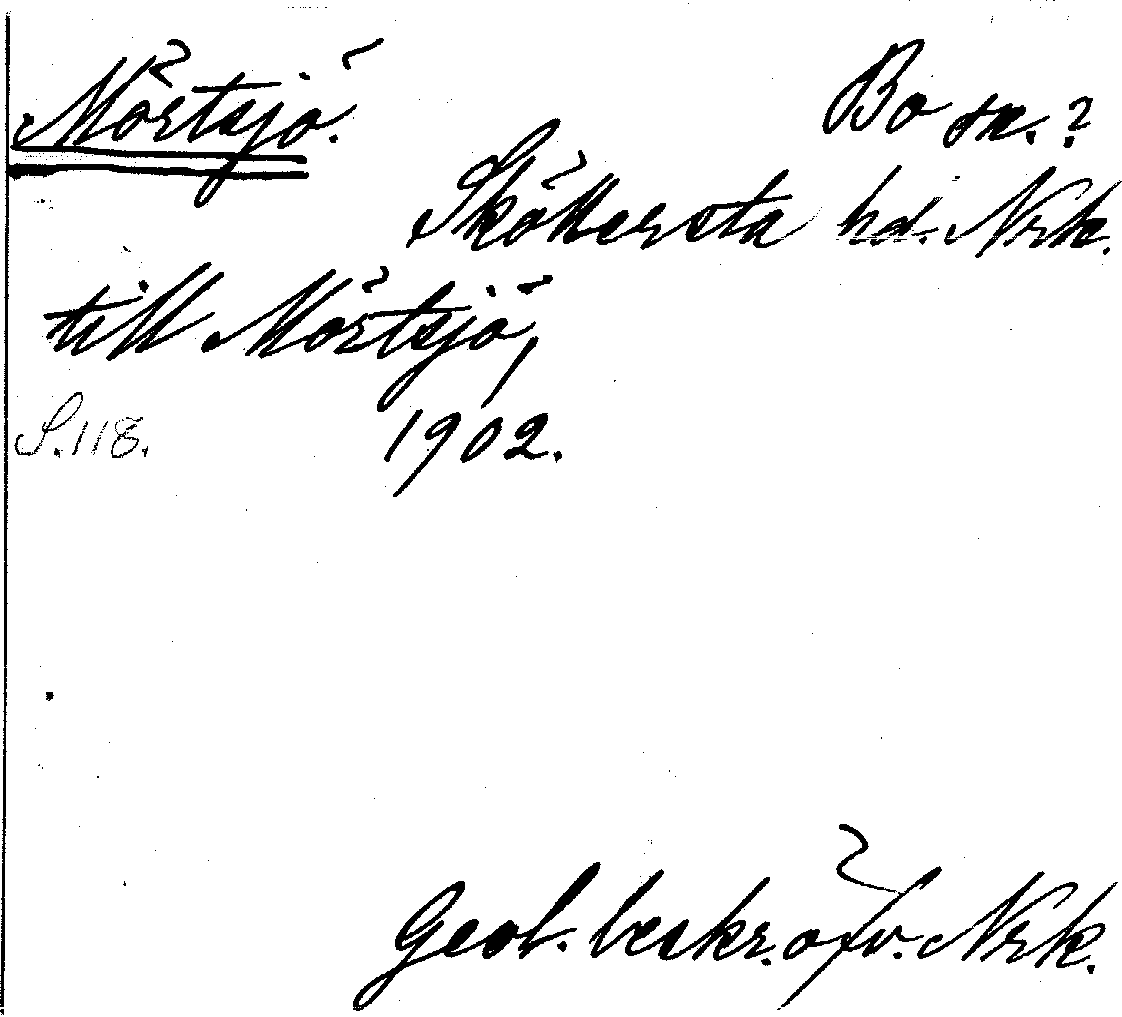 Mörtsjö.
Bo sn.?
Sköllersta hd. Nrk.
till Mörtsjö,
S. 118.
1902.
Geol. beskr. öfv. Nrk.